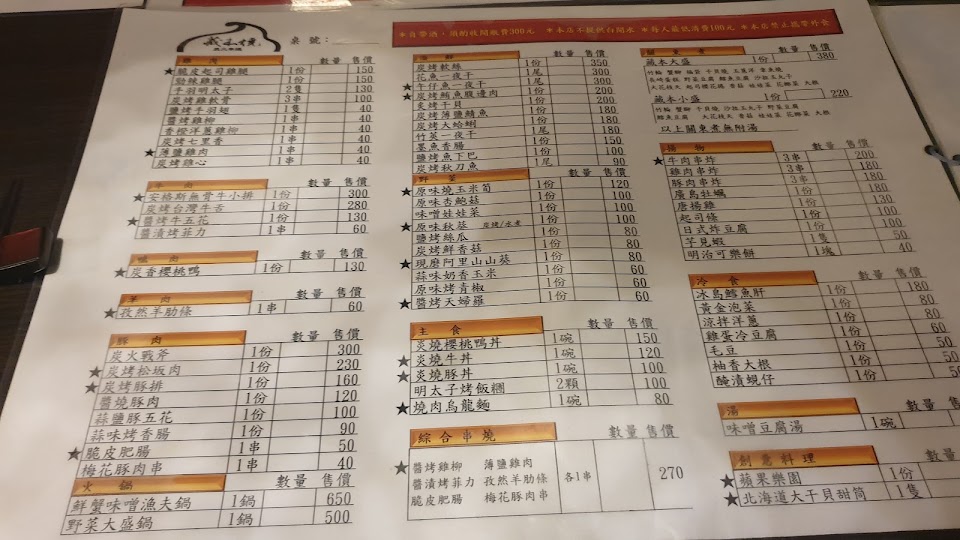 桌號：
★自帶酒，須酌收開瓶費300元 ★本店不提供白開水 ★每人最低消費100元 ★本店禁止攜帶外食
雞肉 數量 售價
★脆皮起司雞腿 1份 150
勁辣雞腿 1份 150
手羽明太子 2隻 130
炭烤雞軟骨 3串 100
鹽烤手羽翅 1隻 40
醬烤雞柳 1串 40
香橙洋蔥雞柳 1串 40
炭烤七里香 1串 40
★薄鹽雞肉 1串 40
炭烤雞心 1串 40
牛肉 數量 售價
★安格斯無骨牛小排 1份 300
炭烤台灣牛舌 1份 280
★醬烤牛五花 1份 130
醬漬烤菲力 1串 60
鴨肉 數量 售價
★炭香櫻桃鴨 1份 130
羊肉 數量 售價
★孜然羊肋條 1串 60
豚肉 數量 售價
炭火戰斧 1份 300
★炭烤松坂肉 1份 230
★炭烤豚排 1份 160
醬燒豚肉 1份 120
蒜鹽豚五花 1份 100
蒜味烤香腸 1份 90
★脆皮肥腸 1串 50
梅花豚肉串 1串 40
火鍋 數量 售價
鮮蟹味噌漁夫鍋 1鍋 650
野菜大盛鍋 1鍋 500
海鮮 數量 售價
炭烤軟絲 1份 350
花魚一夜干 1尾 300
★午仔魚一夜干 1份 200
★炭烤鮪魚腹邊肉 1份 200
炙烤干貝 1份 200
炭烤薄鹽鯖魚 1份 180
炭烤大蛤蜊 1份 180
竹莢一夜干 1尾 180
墨魚香腸 1份 150
鹽烤魚下巴 1份 100
炭烤秋刀魚 1尾 90
野菜 數量 售價
★原味燒玉米筍 1份 120
原味杏鮑菇 1份 100
味噌娃娃菜 1份 100
★原味秋葵 炭烤/水煮 1份 100
鹽烤絲瓜 1份 80
炭烤鮮香菇 1份 80
★現磨阿里山山葵 1份 80
蒜味奶香玉米 1份 60
原味烤青椒 1份 60
★醬烤天婦羅 1份 60
主食 數量 售價
炎燒櫻桃鴨丼 1碗 150
★炎燒牛丼 1碗 120
★炎燒豚丼 1碗 100
明太子烤飯糰 2顆 100
★燒肉烏龍麵 1碗 80
綜合串燒 數量 售價
★醬烤雞柳 薄鹽雞肉
醬漬烤菲力 孜然羊肋條 各1串 270
脆皮肥腸 梅花豚肉串
關東煮 數量 售價
藏本大盛 1份 380
藏本小盛 1份 220
以上關東煮無附湯
揚物 數量 售價
★牛肉串炸 3串 200
雞肉串炸 3串 180
豚肉串炸 3串 180
廣島牡蠣 1份 180
唐揚雞 1份 130
起司條 1份
日式炸豆腐 1份
芋見蝦 1隻 50
明治可樂餅 1塊 40
冷食 數量 售價
冰島鱈魚肝 1份 180
黃金泡菜 1份 80
涼拌洋蔥 1份 80
雞蛋冷豆腐 1份 60
毛豆 1份 50
柚香大根 1份 50
醃漬蜆仔 1份 50
湯 數量 售價
味噌豆腐湯 1碗
創意料理 數量 售價
★蘋果樂園 1份
★北海道大干貝甜筒 1隻